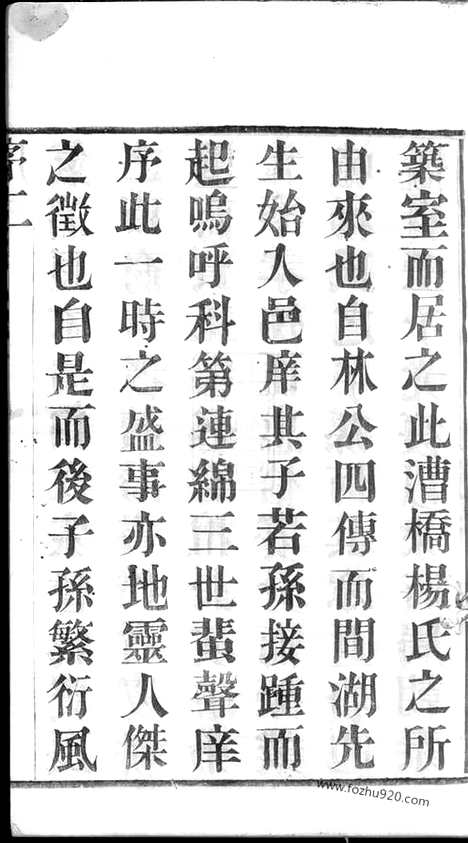 築室而居之此漕橋楊氏之所
由來也自林公四傳而間湖先
生始入邑庠其子若孫接踵而
起嗚呼科第連綿三世蜚聲庠
序此一時之盛事亦地靈人傑
之徵也自是而後子孫繁衍風
序二
www.fozhu920.com